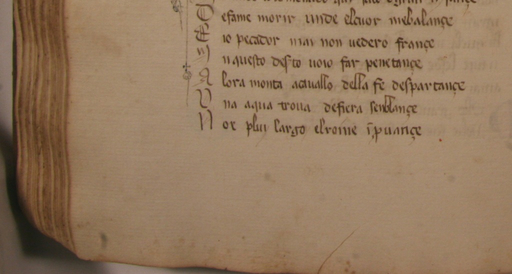 D efame morir unde elcuor mebalançe
E io pecador mai non vedero françe
I nquesto desto voio far penetançe
A lora monta acavallo della fe despartançe
V na aqua trova defiera senblançe
N or plui largo elrome ĩpuançe